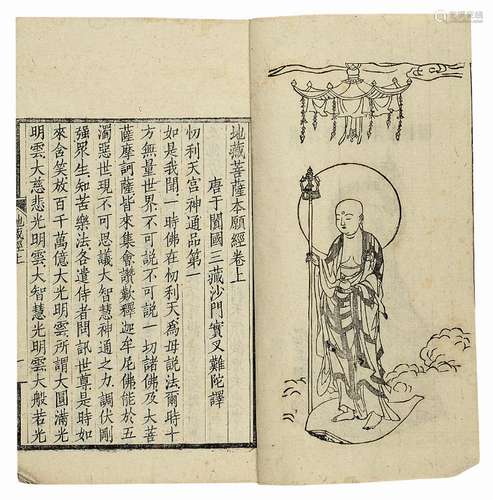 地藏菩薩本願經卷上
唐于闐國三藏沙門實叉難陀譯
忉利天宮神通品第一
如是我聞一時佛在忉利天為母說法爾時十
方無量世界不可說不可說一切諸佛及大菩
薩摩訶薩皆來集會讚歎釋迦牟尼佛能於五
濁惡世現不可思議大智慧神通之力調伏剛
強眾生知苦樂法各遣侍者問訊世尊是時如
來含笑放百千萬億大光明雲所謂大圓滿光
明雲大慈悲光明雲大智慧光明雲大般若光
地藏經上
一